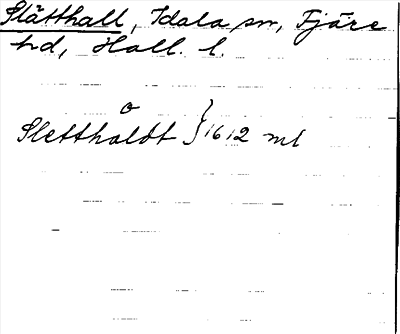 Slätthall, Idala sn, Fjäre
hd, Hall. l.
Slettholdt } 1612 ml